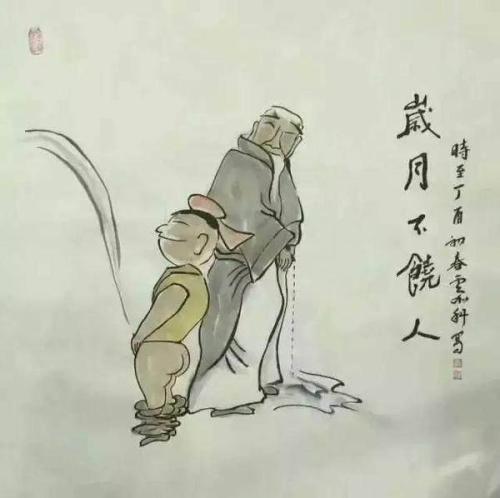 歲月不饒人
時至丁酉初春雲科寫